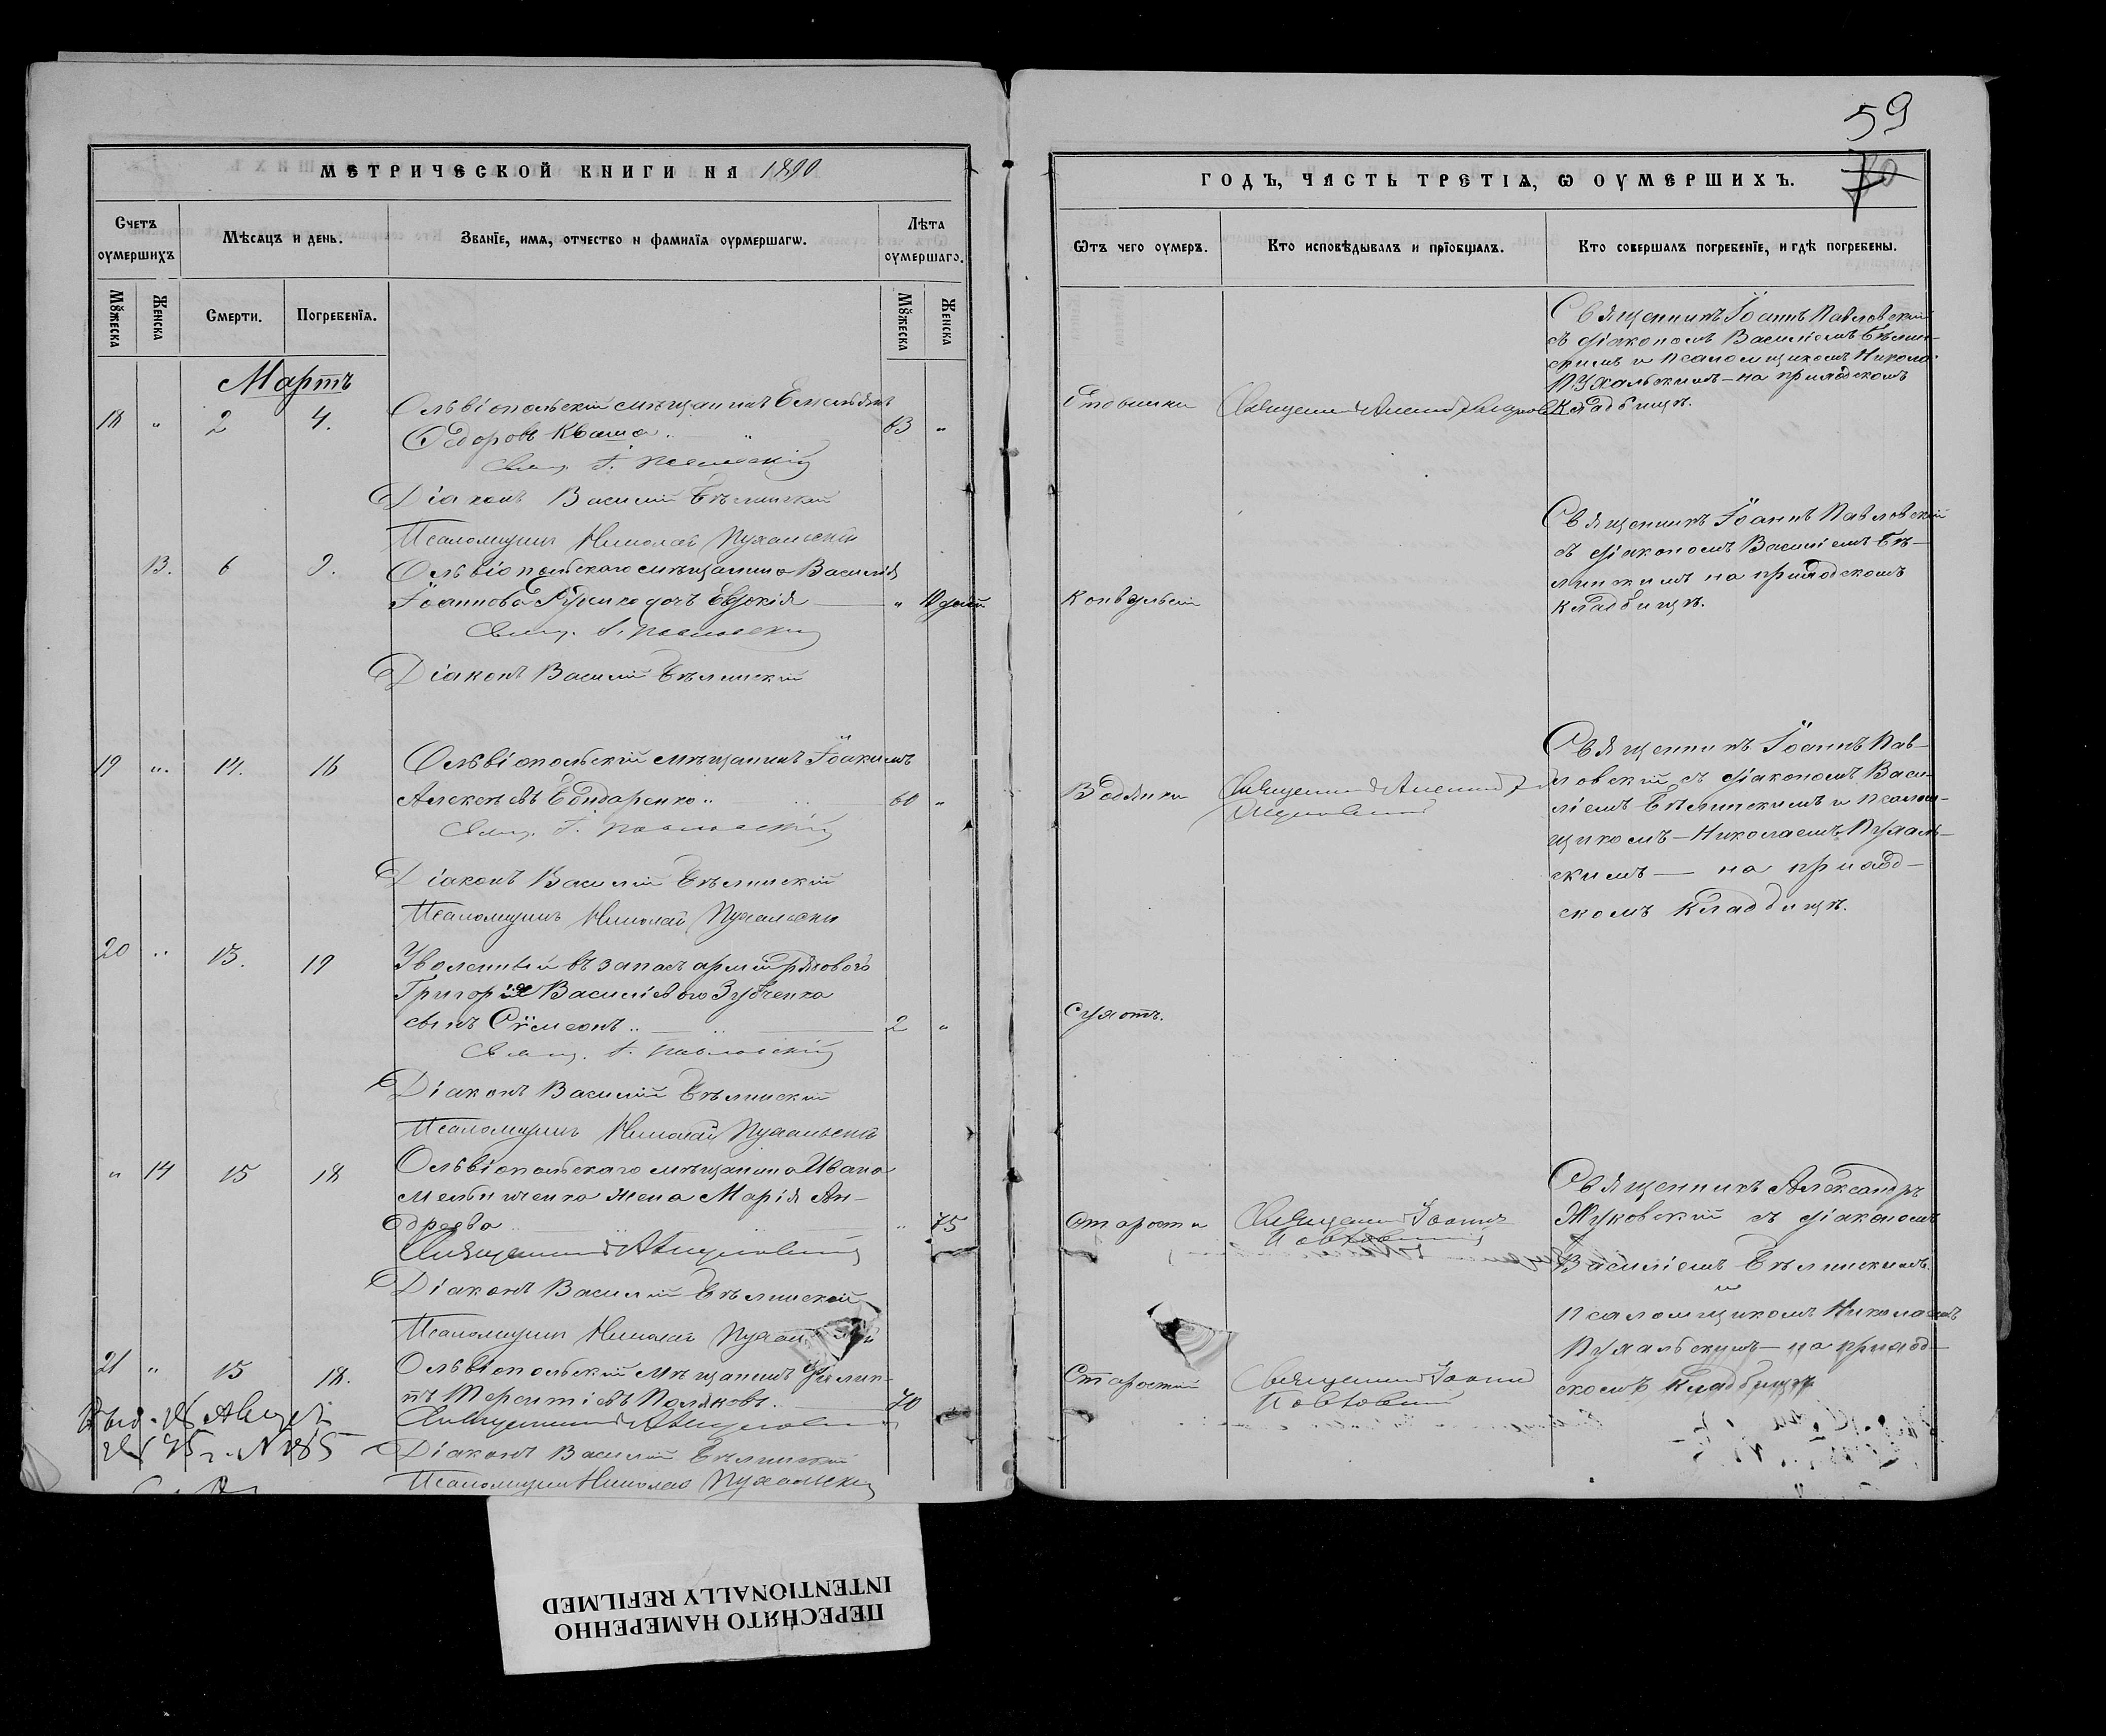 59
70
МЕТРИЧЕСКОЙ КНИГИ НА 1890
ГОДЪ, ЧАСТЬ ТРЕТІѦ, Ѡ ОУМЕРШИХЪ.
Счетъ оумершихъ
Мѣсѧцъ и день.
Званїе, имѧ, отчество и фамилїѧ оумершагѡ.
Лѣта оумершаго.
Мꙋжеска
Женска
Смерти.
Погребенїѧ.
Мꙋжеска
Женска
Ѿтъ чего оумеръ.
Кто исповѣдывалъ и прїобщалъ.
Кто совершалъ погребенїе, и гдѣ погребены.
Мартъ
18 " 2 4.
Ольвіопольскій мѣщанинъ Емельянъ
Ѳедоровъ Кваша 63 "
Свящ. І. Павловскій
Діаконъ Василій Бѣлинскій
Псаломщикъ Николай Пухальскій
Священникъ Іоаннъ Павловскій
съ діакономъ Василіемъ Бѣлин-
скимъ и псаломщикомъ Никола.
Пухальскимъ – на приходскомъ
Кладбищѣ.
13. 6 9.
Ольвіопольскаго мѣщанина Василія
Іоаннова дочь Евдокія " 10 дней
Свящ. І. Павловскій
Діаконъ Василій Бѣлинскій
Конвульсій
Священникъ Іоаннъ Павловскій
съ діакономъ Василіемъ Бѣ-
линскимъ на приходскомъ
кладбищѣ.
19 " 14. 16
Ольвіопольскій мѣщанинъ Іоакимъ
Алексѣевъ Бондаренко 60 "
Свящ. І. Павловскій
Діаконъ Василій Бѣлинскій
Псаломщикъ Николай Пухальскій
Водянки
Священникъ Іоаннъ Пав-
ловскій съ діакономъ Васи-
ліемъ Бѣлинскимъ и псалом-
щикомъ – Николаемъ Пухаль-
скимъ – на приход-
скомъ кладбищѣ.
20 " 13. 19
Уволенный въ запасъ арміи рядового
Григорія Василіева Зубченка
сынъ Сѵмеонъ 2 "
Свящ. І. Павловскій
Діаконъ Василій Бѣлинскій
Псаломщикъ Николай Пухальскій
Сухотъ.
" 14 15 18
Ольвіопольскаго мѣщанина Ивана
Мельниченка жена Марія Ан-
дреева " 75
Діаконъ Василій Бѣлинскій
Псаломщикъ Николай
Старости
Священникъ Іоаннъ
Павловскій
Священникъ Александръ
Жуковскій съ діакономъ
Василіемъ Бѣлинскимъ
и
псаломщикомъ Николаемъ
Пухальскимъ – на приход-
скомъ кладбищѣ
21 " 15 18.
Ольвіопольскій мѣщанинъ Филип-
пъ Терентіевъ Поляковъ. 70
Діаконъ Василій Бѣлинскій
Псаломщикъ Николай Пухальскій
Старости
Священникъ Іоаннъ
Павловскій
ПЕРЕСНЯТО НАМЕРЕННО
INTENTIONALLY REFILMED